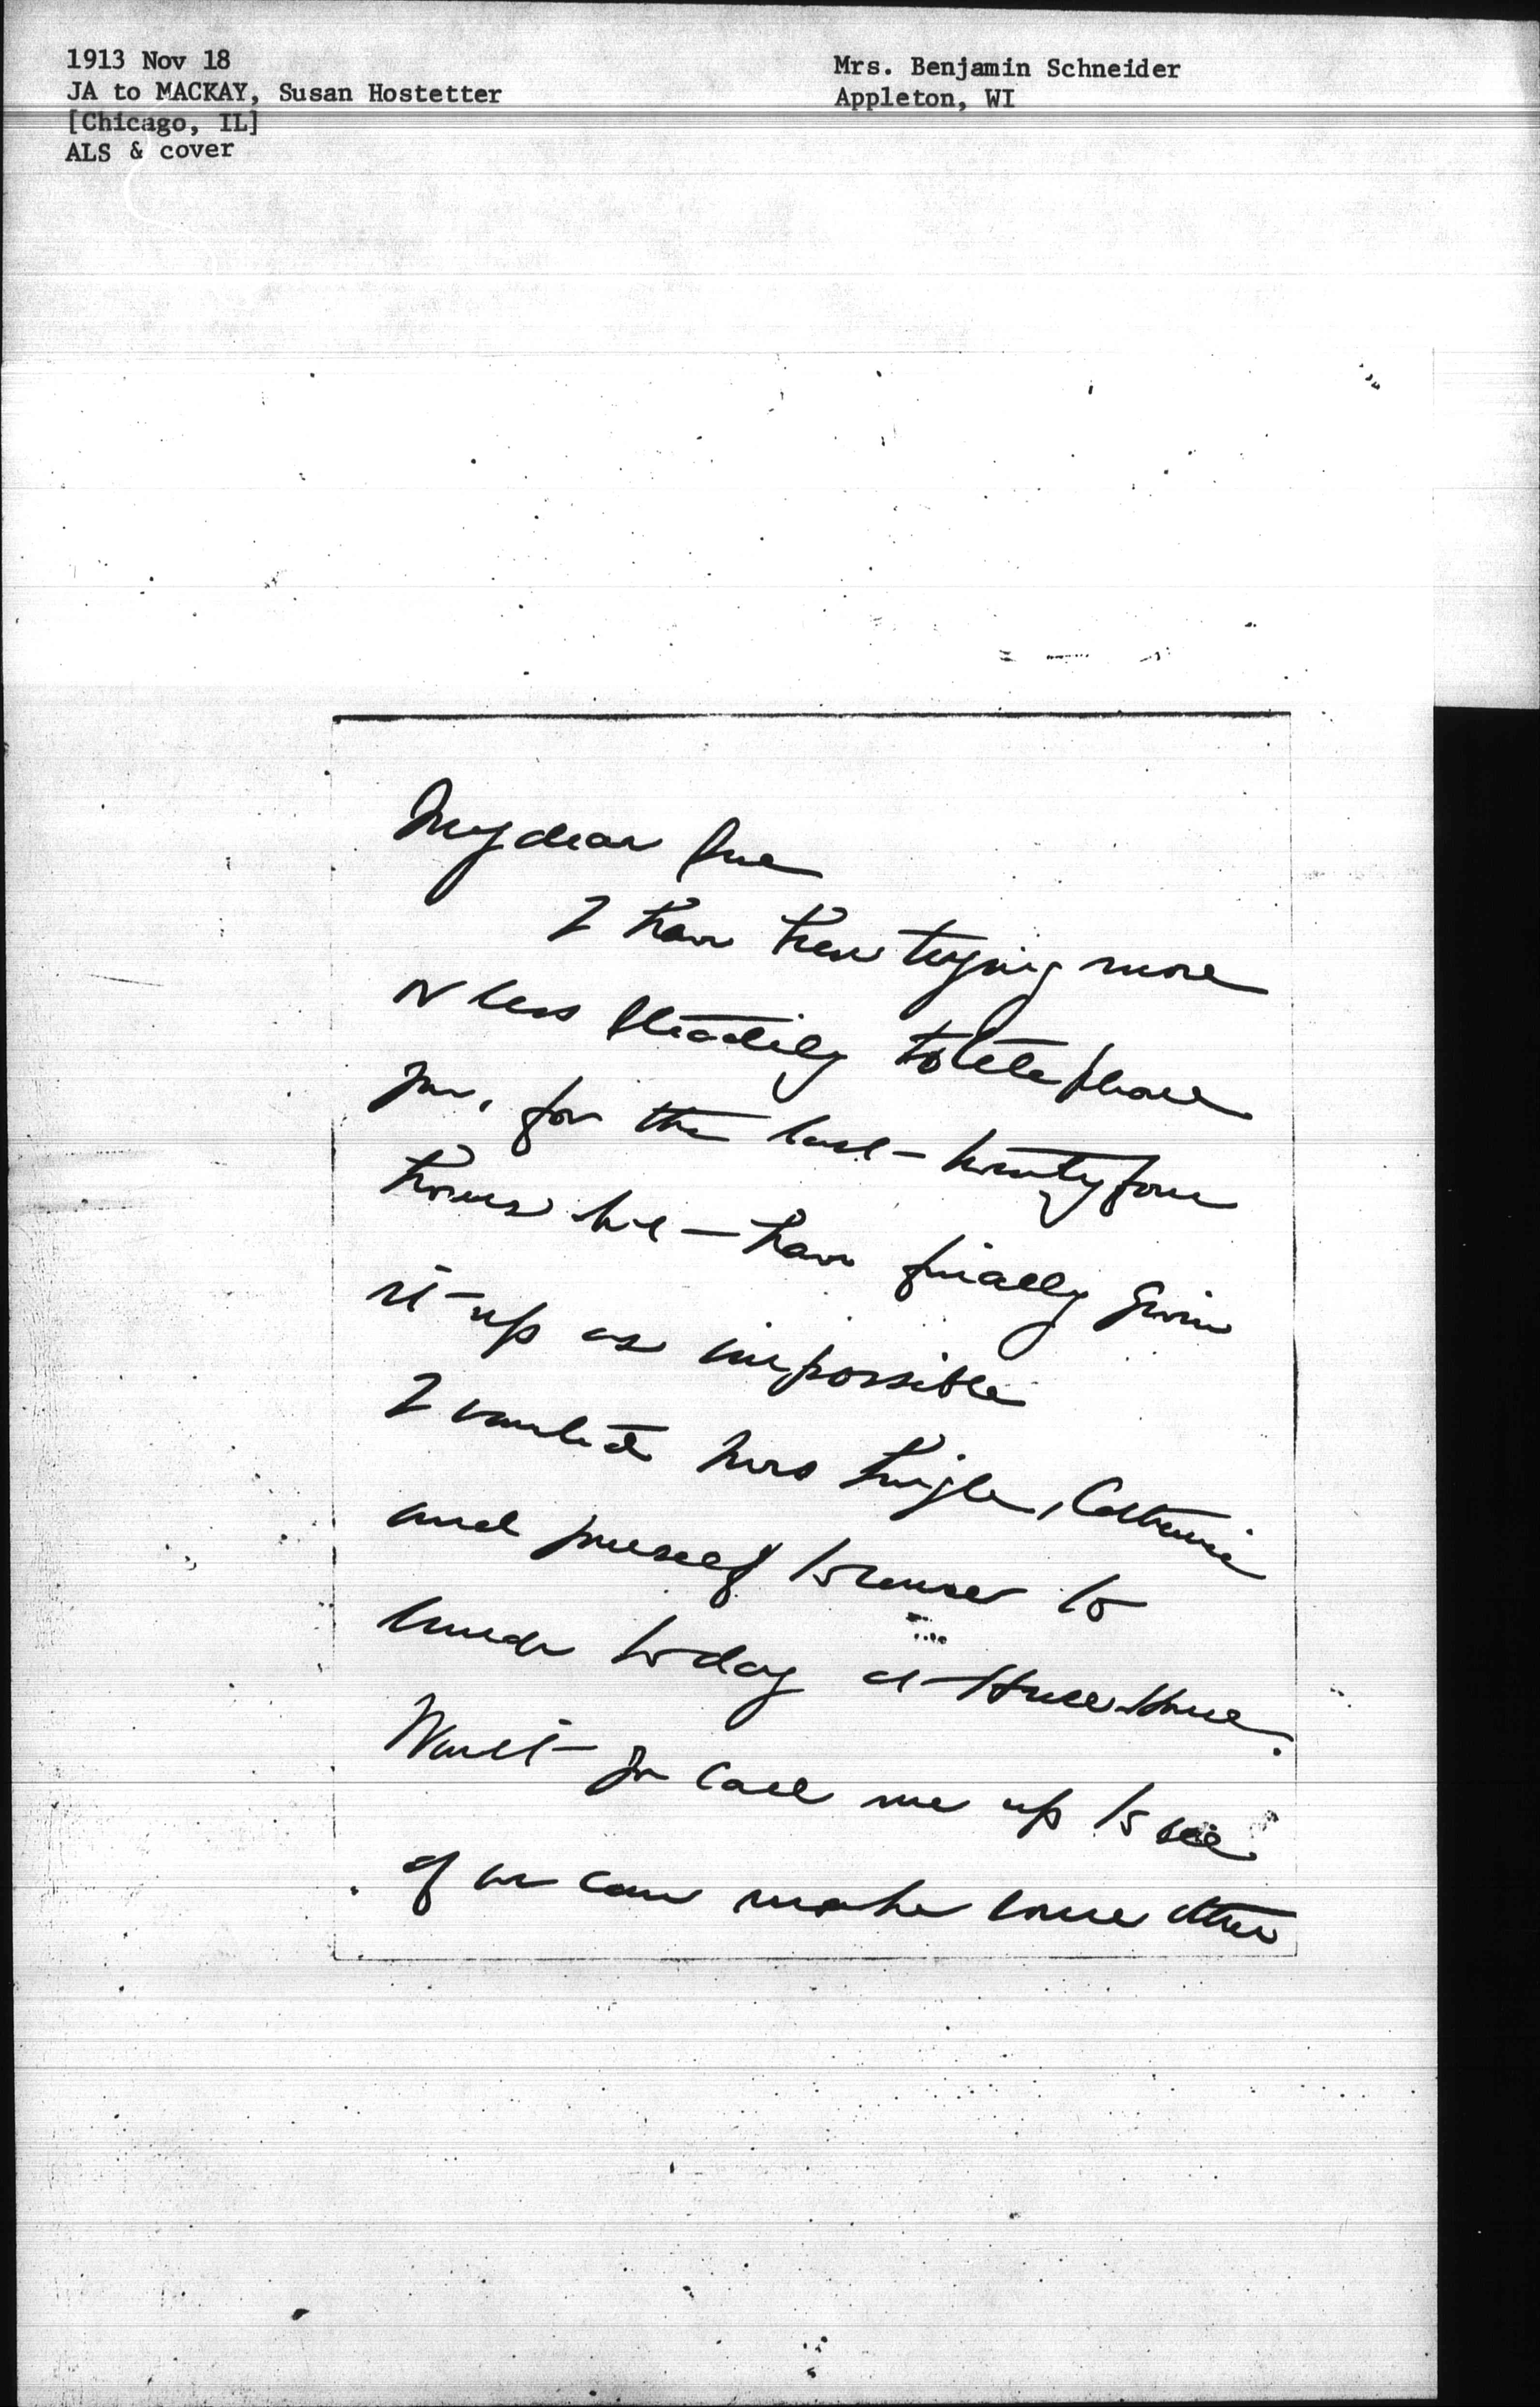 1913 Nov 18
JA to MACKAY, Susan Hostetter
[Chicago, IL]
ALS & cover
Mrs. Benjamin Schneider
Appleton, WI
My dear Sue
I have been trying more
or less steadily to telephone
you, for the last twenty four
hours but have finally given
it up as impossible
I wanted Mrs
and yourself to come to
lunch today at Hull House.
Won't you call me up to see
if we can make some other